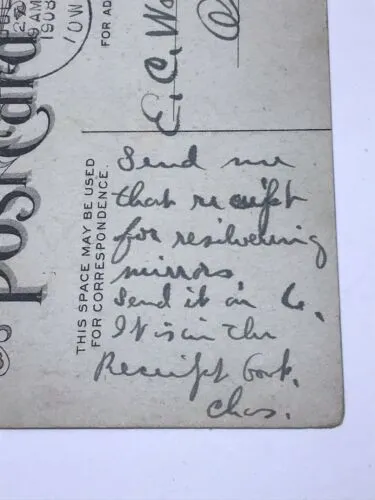 1908
9 AM
IOW
FOR AD
E. C. W
Post Card
THIS SPACE MAY BE USED
FOR CORRESPONDENCE.
Send me
that receipt
for resilvering
mirrors.
Send it on 6.
It is in the
Receipt book.
Chas.